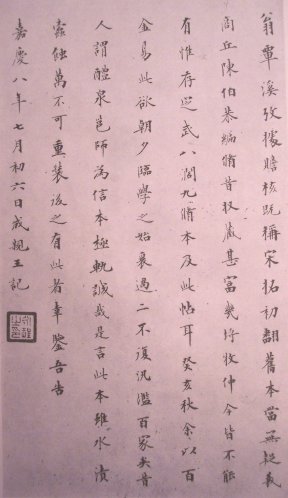 翁覃溪攷據賅核既稱宋拓初翻舊本當無疑義
商丘陳伯恭編脩昔收藏甚富幾埒牧仲今皆不能
有惟存定武八闊九脩本及此帖耳癸亥秋余以百
金易此欲朝夕臨學之始衰過二不復況濫百家矣昔
人謂醴泉邕師為信本極軌誠哉是言此本雖水漬
蠹蝕萬不可重裝後之有此者幸鑒吾告
嘉慶八年七月初六日成親王記